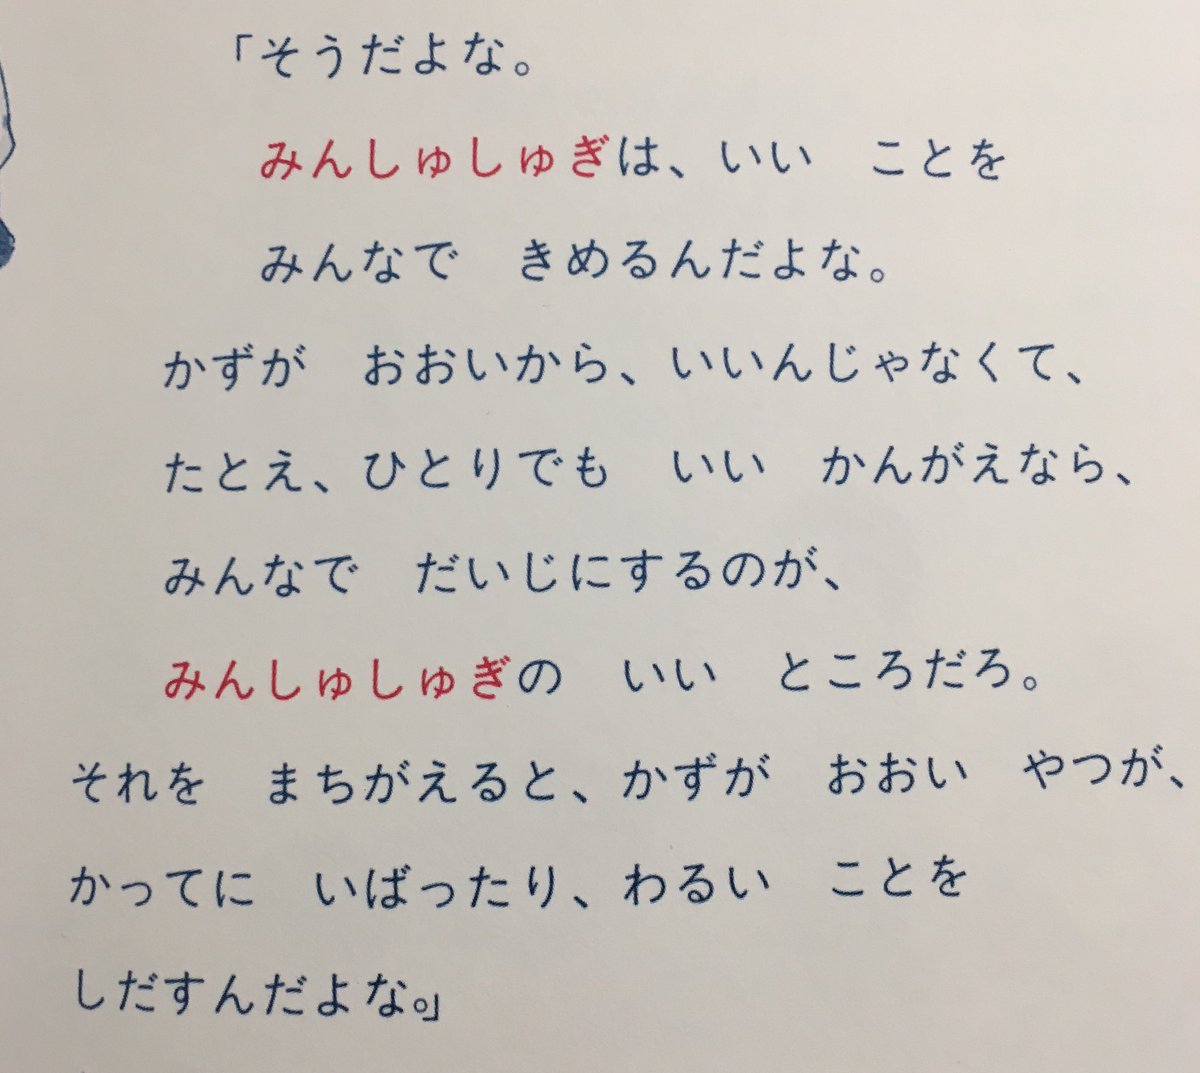 「そうだよな。
みんしゅしゅぎは、いい　ことを
みんなで　きめるんだよな。
かずが　おおいから、いいんじゃなくて、
たとえ、ひとりでも　いい　かんがえなら、
みんなで　だいじにするのが、
みんしゅしゅぎの　いい　ところだろ。
それを　まちがえると、かずが　おおい　やつが、
かってに　いばったり、わるい　ことを
しだすんだよな。」